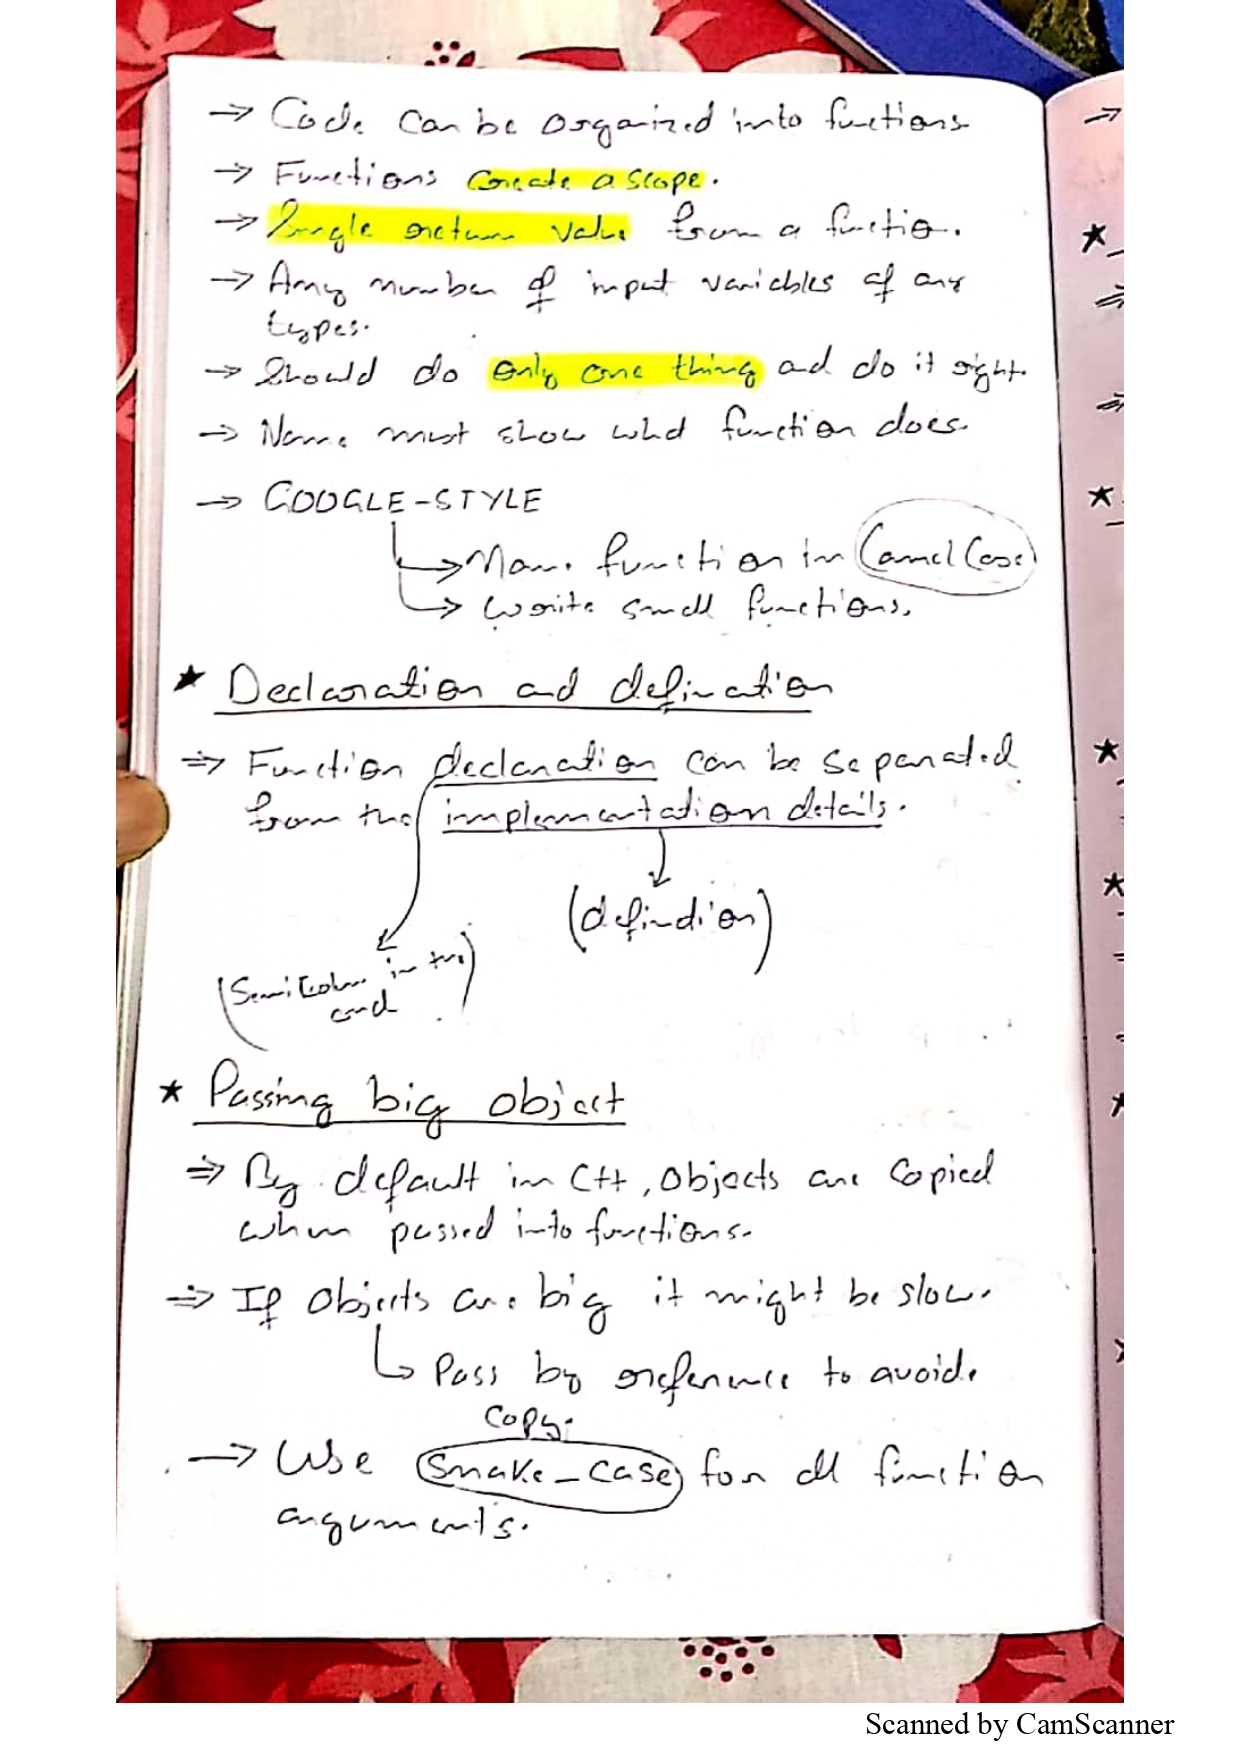 → Code can be organized into functions
→ Functions create a scope.
→ Single return value from a functio.
→ Any number of input variables of any
types.
→ Should do only one thing and do it right.
→ Name must show what function does.
→ GOOGLE-STYLE
→ Name function in CamelCase
→ write small functions.
★ Declaration and defination
⇒ Function declaration can be separated
from the implementation details.
(definition)
(Semicolon in the
end)
★ Passing big object
⇒ By default in C++, objects are copied
when passed into functions.
⇒ If objects are big it might be slow.
↳ Pass by reference to avoid
copy.
→ Use snake_case for all function
arguments.
Scanned by CamScanner